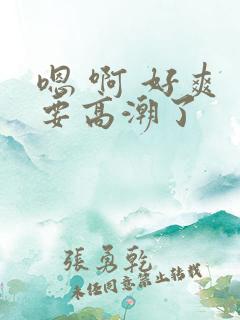 嗯 啊 好爽
要高潮了
張勇乾
未經同意禁止轉載